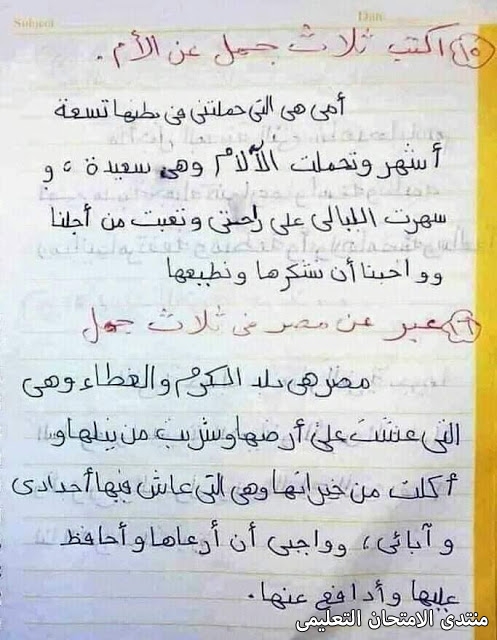 Subject Date
١٥ اكتب ثلاث جمل عن الأم .
أمى هى التى حملتنى فى بطنها تسعة
أشهر وتحملت الآلام وهى سعيدة ، و
سهرت الليالى على راحتى وتعبت من أجلنا
وواجبنا أن نشكرها ونطيعها
١٦ عبر عن مصر فى ثلاث جمل
مصر هى بلد الكرم والعطاء وهى
التى عشت على أرضها وشربت من نيلها و
أكلت من خيراتها وهى التى عاش فيها أجدادى
و آبائى ، وواجبى أن أرعاها وأحافظ
عليها وأدافع عنها .
منتدى الامتحان التعليمى